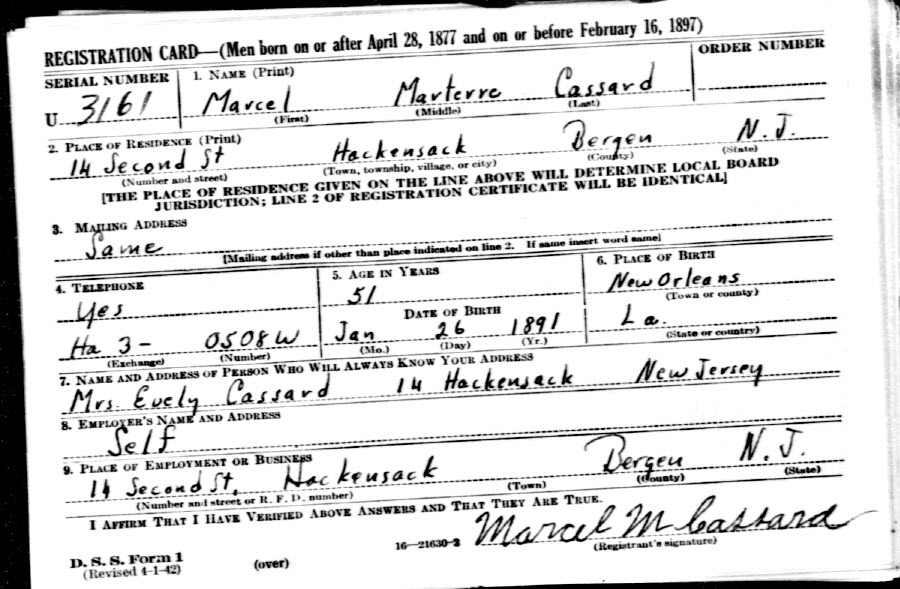 REGISTRATION CARD—(Men born on or after April 28, 1877 and on or before February 16, 1897)
SERIAL NUMBER 1. NAME (Print) ORDER NUMBER
U 3161 Marcel Marterre Cassard
(First) (Middle) (Last)
2. PLACE OF RESIDENCE (Print)
14 Second St Hackensack Bergen N.J.
(Number and street) (Town, township, village, or city) (County) (State)
[THE PLACE OF RESIDENCE GIVEN ON THE LINE ABOVE WILL DETERMINE LOCAL BOARD
JURISDICTION; LINE 2 OF REGISTRATION CERTIFICATE WILL BE IDENTICAL]
3. MAILING ADDRESS
Same
[Mailing address if other than place indicated on line 2. If same insert word same]
4. TELEPHONE 5. AGE IN YEARS 6. PLACE OF BIRTH
Yes 51 New Orleans
DATE OF BIRTH (Town or county)
Ha 3- 0508W Jan 26 1891 La.
(Exchange) (Number) (Mo.) (Day) (Yr.) (State or country)
7. NAME AND ADDRESS OF PERSON WHO WILL ALWAYS KNOW YOUR ADDRESS
Mrs. Evely Cassard 14 Hackensack New Jersey
8. EMPLOYER'S NAME AND ADDRESS
Self
9. PLACE OF EMPLOYMENT OR BUSINESS
14 Second St, Hackensack Bergen N.J.
(Number and street or R. F. D. number) (Town) (County) (State)
I AFFIRM THAT I HAVE VERIFIED ABOVE ANSWERS AND THAT THEY ARE TRUE.
Marcel M Cassard
D. S. S. Form 1 16—21630-2 (Registrant's signature)
(Revised 4-1-42) (over)